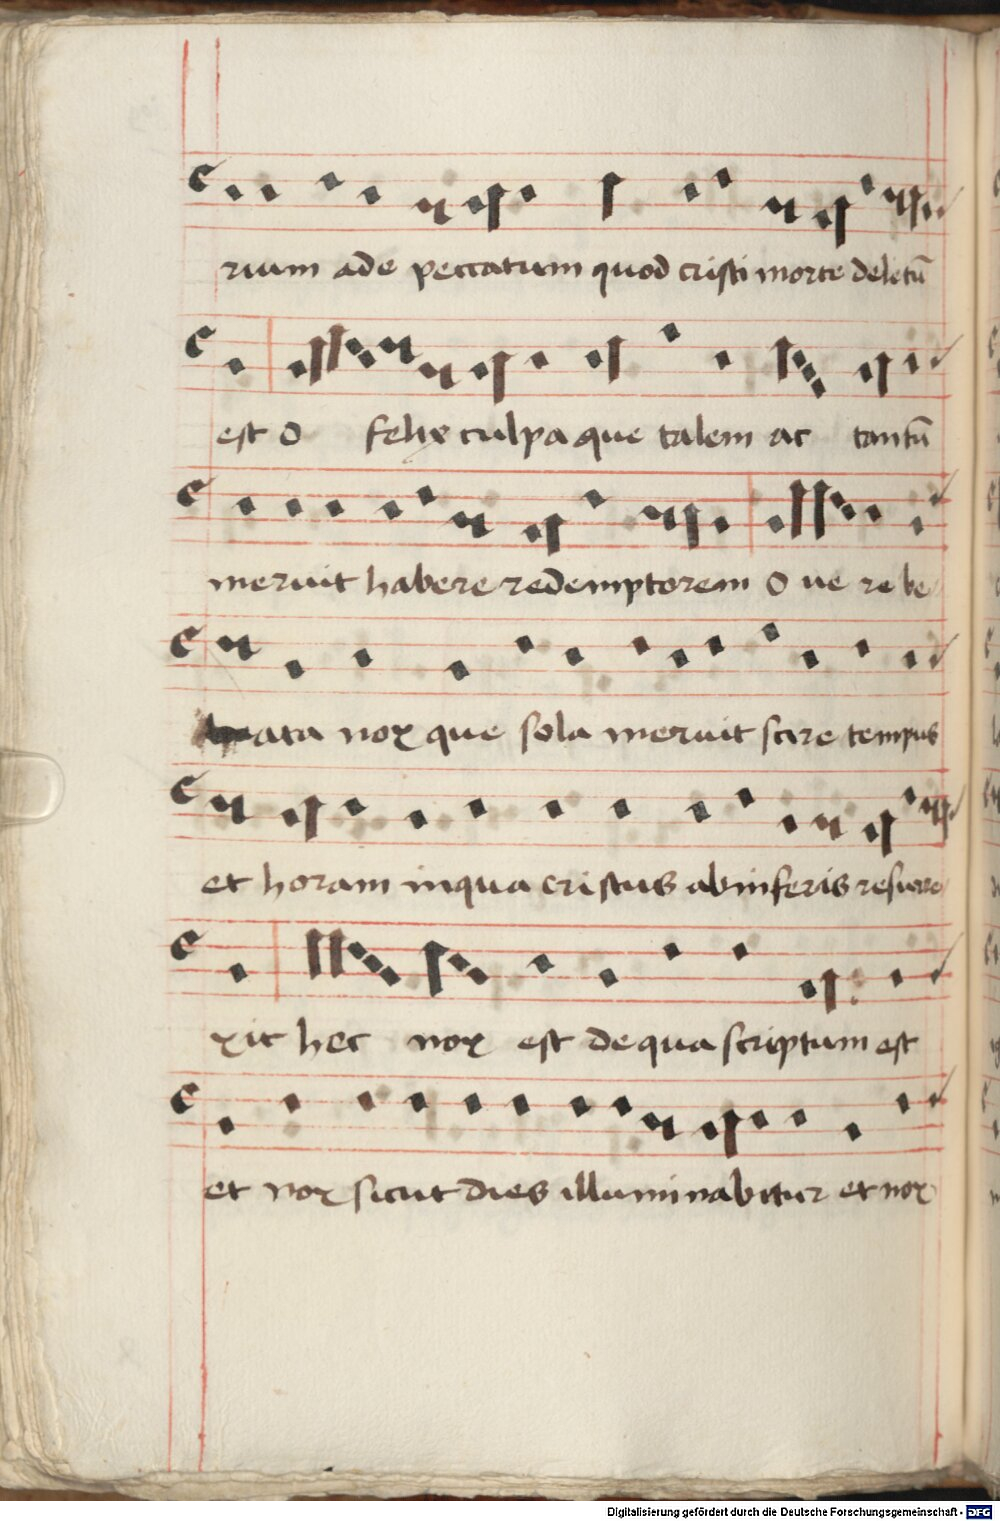 rium ade peccatum quod cristi morte deletū
est O felix culpa que talem ac tantū
meruit habere redemptorem O ve re be
ata nox que sola meruit scire tempus
et horam inqua cristus abinferis resurre
xit hec nox est dequa scriptum est
et nox sicut dies illuminabitur et nox
Digitalisierung gefördert durch die Deutsche Forschungsgemeinschaft - DFG